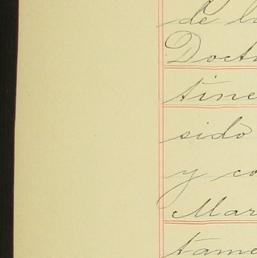 de l
Doct
tine
sido
y co
Mar
tame